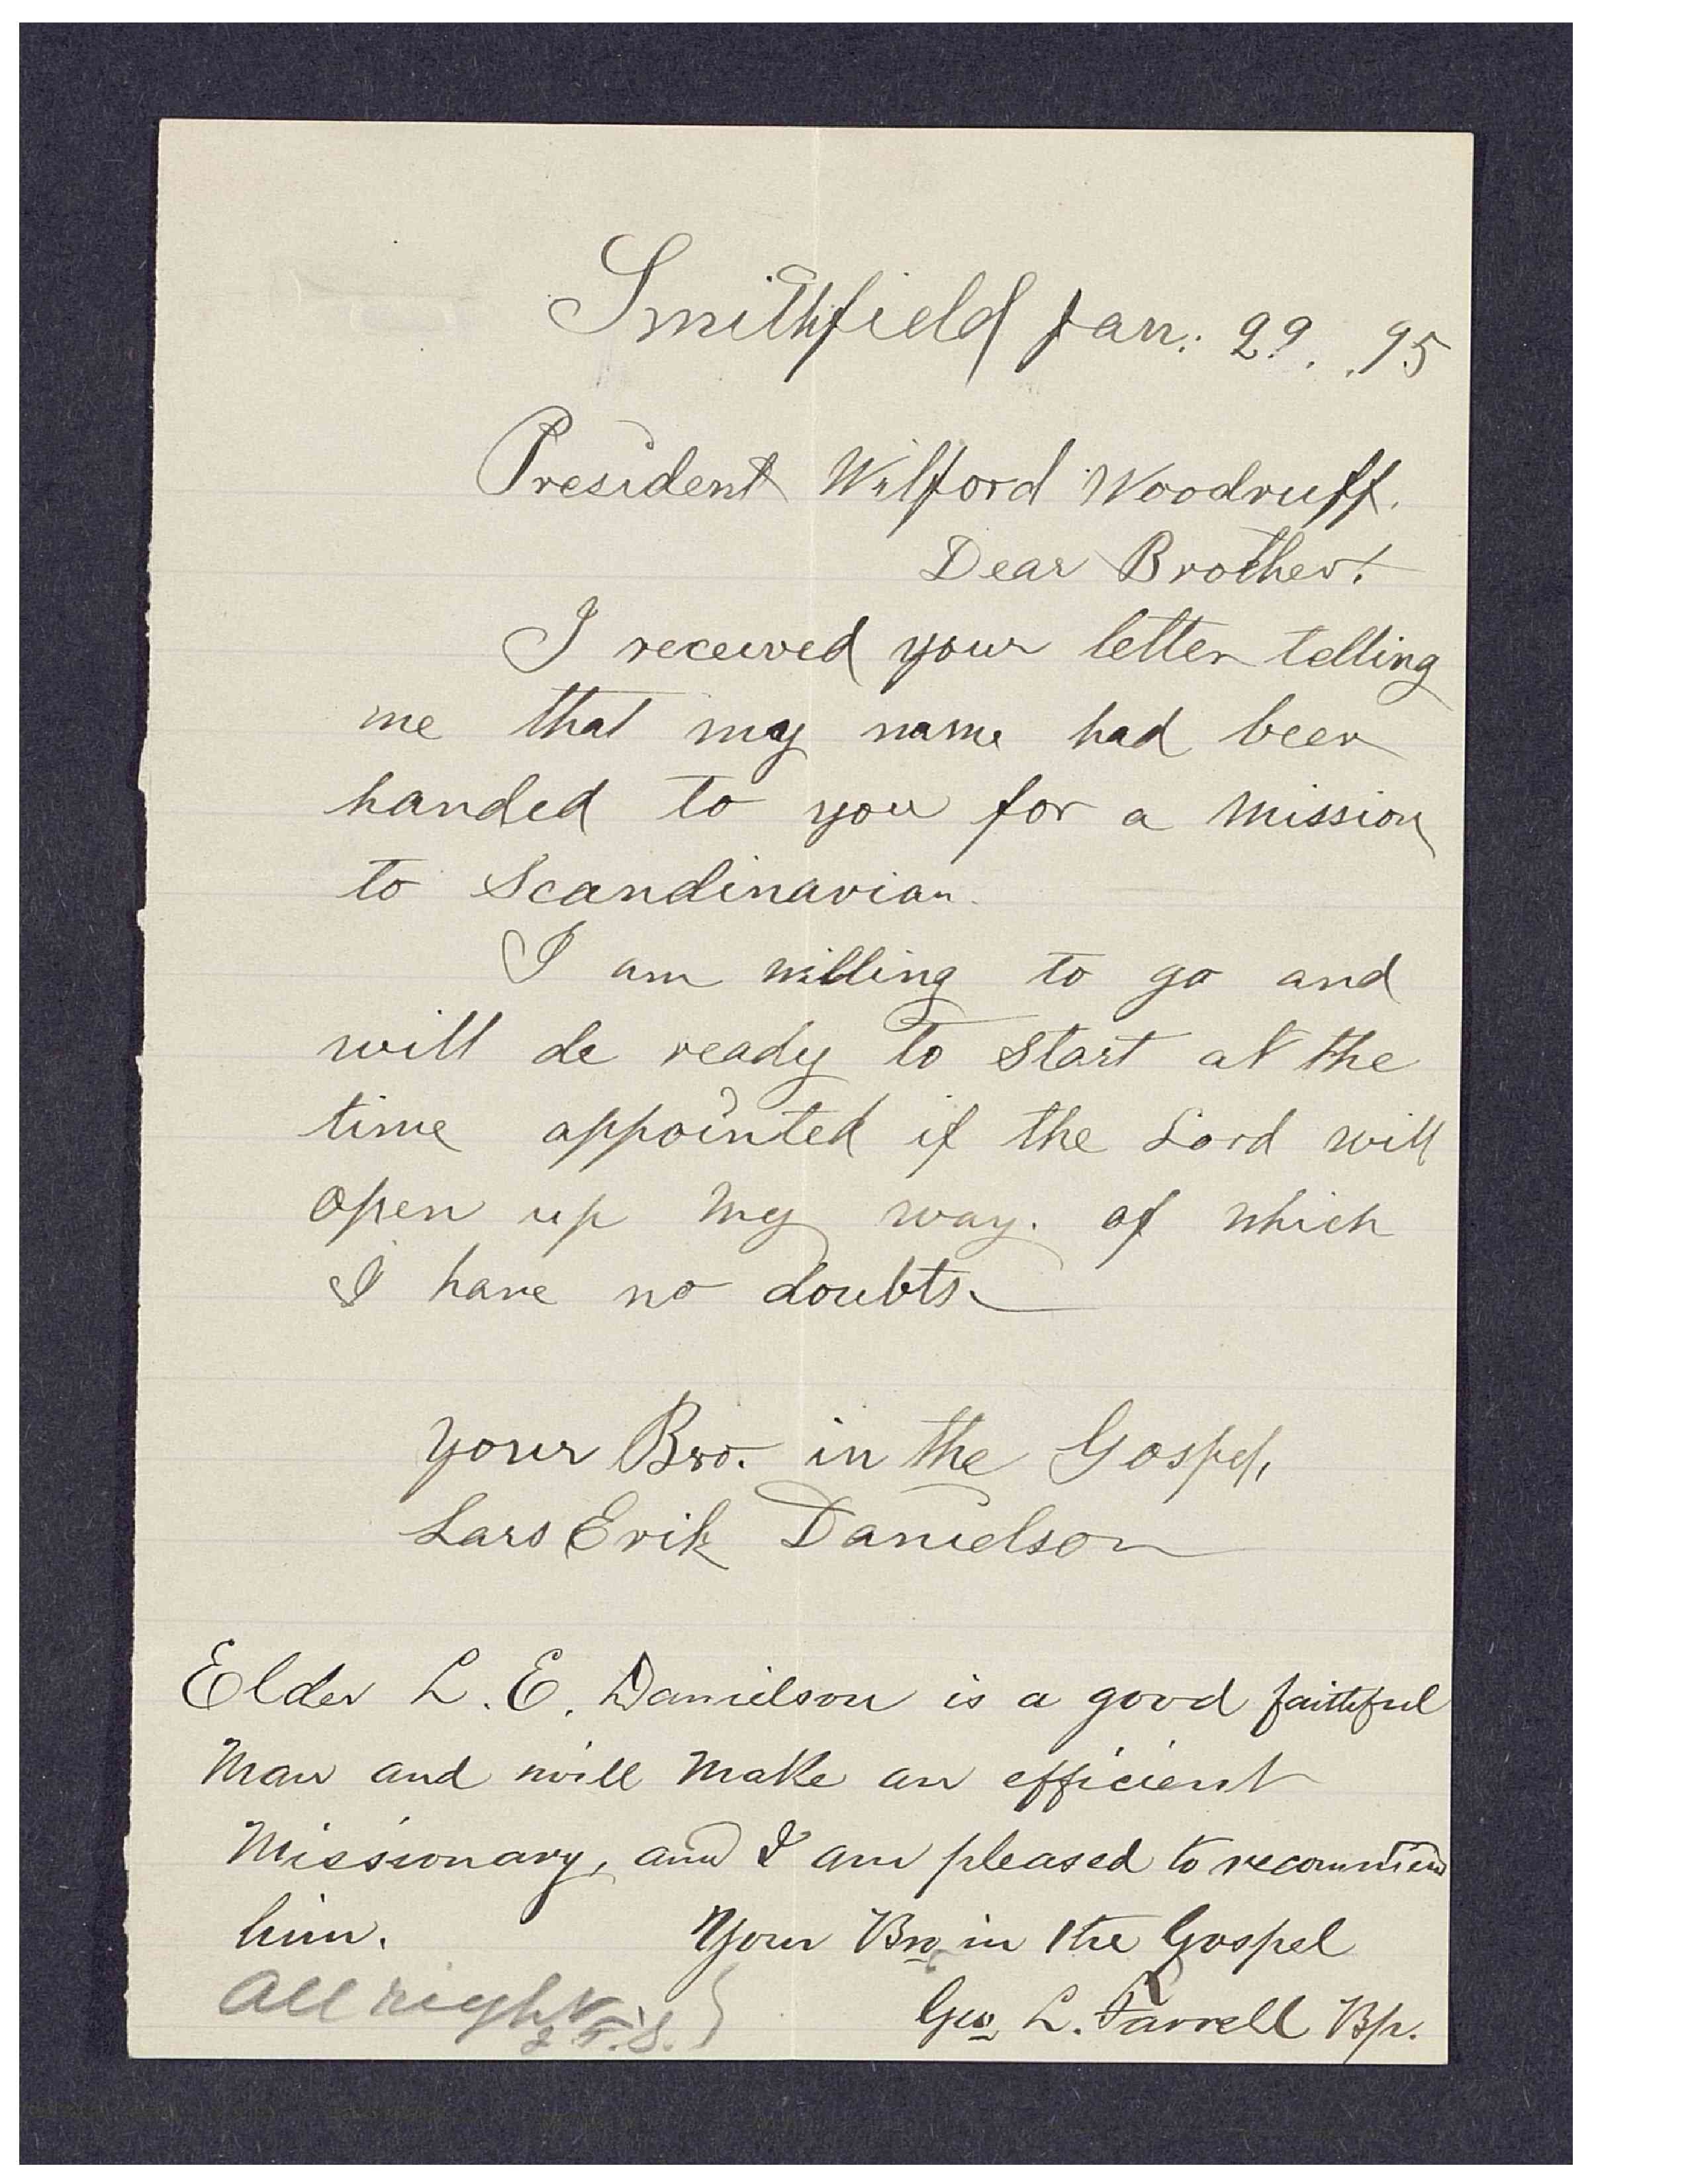 Smithfield Jan: 29. .95
President Wilford Woodruff.
Dear Brother!
I received your letter telling
me that my name had been
handed to you for a mission
to Scandinavian.
I am willing to go and
will de ready to start at the
time appointed if the Lord will
open up my way. of which
I have no doubts.
your Bro. in the Gospel,
Lars Erik Danielson
Elder L. E. Danielson is a good faithful
Man and will Make an efficient
Missionary, and I am pleased to recommend
him. Your Bro in the Gospel
All right Geo L. Farrell Bp.